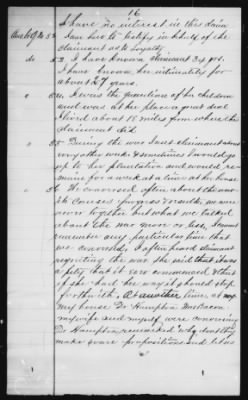 16
I have no interest in this claim
I am here to testify in behalf of the
claimant as to loyalty
do 53 I have known claimant 34 yrs.
I have known her intimately for
about 27 years.
do 54 I was the guardian of her children
and was at the place a great deal
I lived about 18 miles from where the
claimant did.
do 55 During the war I met claimant about
every other week & sometimes I would go
up to her plantation and would re-
main for a week at a time at her house
do 56 We conversed often about the war
its causes progress & results, we were
never together but what we talked
about the war more or less, I cannot
remember any particular time that
we conversed, I often heard claimant
regretting the war she said that it was
a pity that it ever commenced & that
if she had her way it should stop
forthwith. At another time, at my
my house Dr Hampton
my wife and myself were conversing
Dr Hampton remarked why don't they
make some propositions and let us